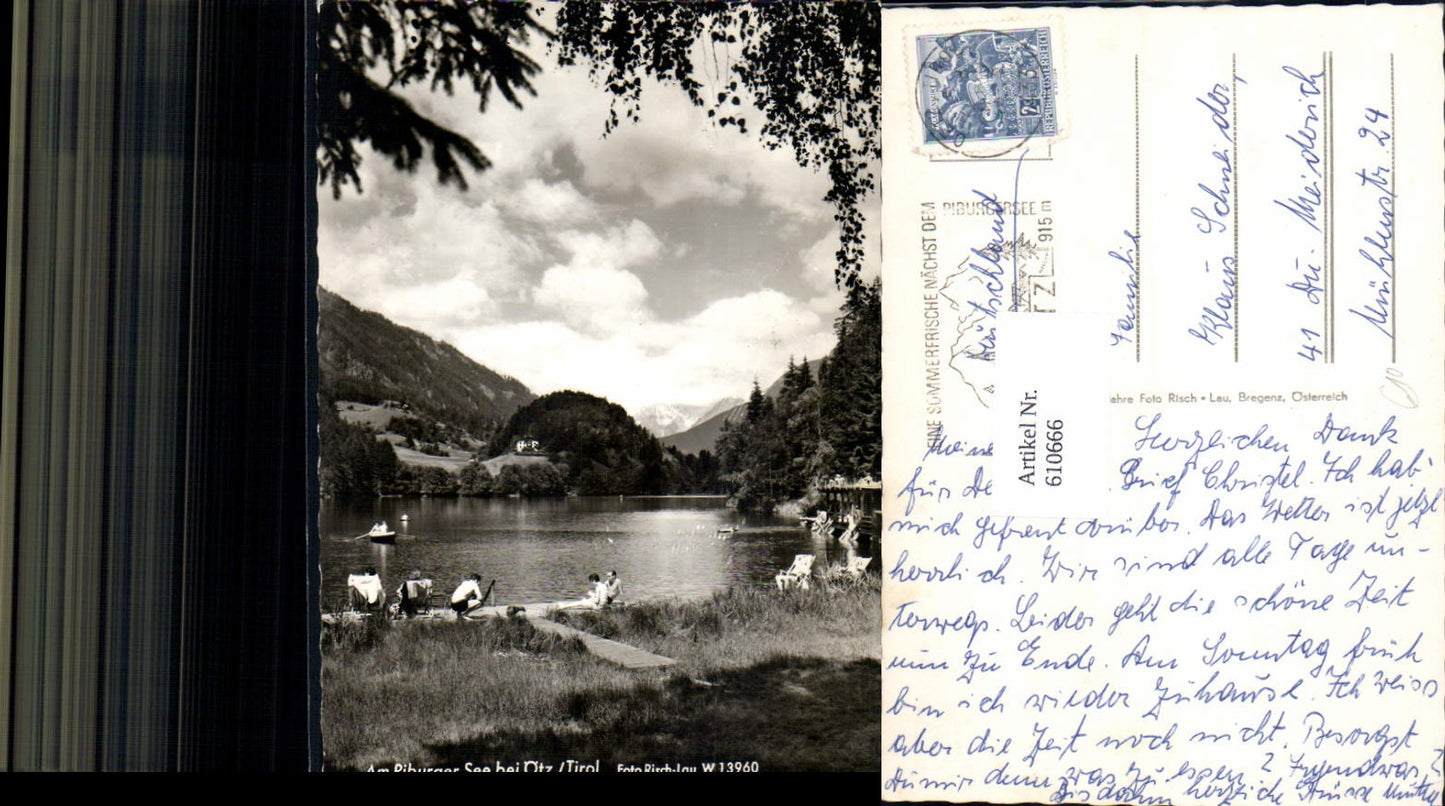 Am Piburger See bei Ötz /Tirol Foto Risch-Lau W 13960
REPUBLIK ÖSTERREICH
EINE SOMMERFRISCHE NÄCHST DEM
PIBURGERSEE
915 m
TZ
Deutschland
Familie
Klaus Schneider,
41 Du.- Meiderich
Mühlenstr. 24
ahre Foto Risch-Lau, Bregenz, Österreich
Artikel Nr.
610666
Meine Herzlichen Dank
für De Brief Christel. Ich hab'
mich gefreut darüber. Das Wetter ist jetzt
herrlich. Wir sind alle Tage un-
terwegs. Leider geht die schöne Zeit
nun zu Ende. Am Sonntag früh
bin ich wieder zuhause. Ich weiss
aber die Zeit noch nicht. Besorgst
Du mir denn was zu essen? Irgendwas?
Bis dahin herzliche Grüsse Mutter